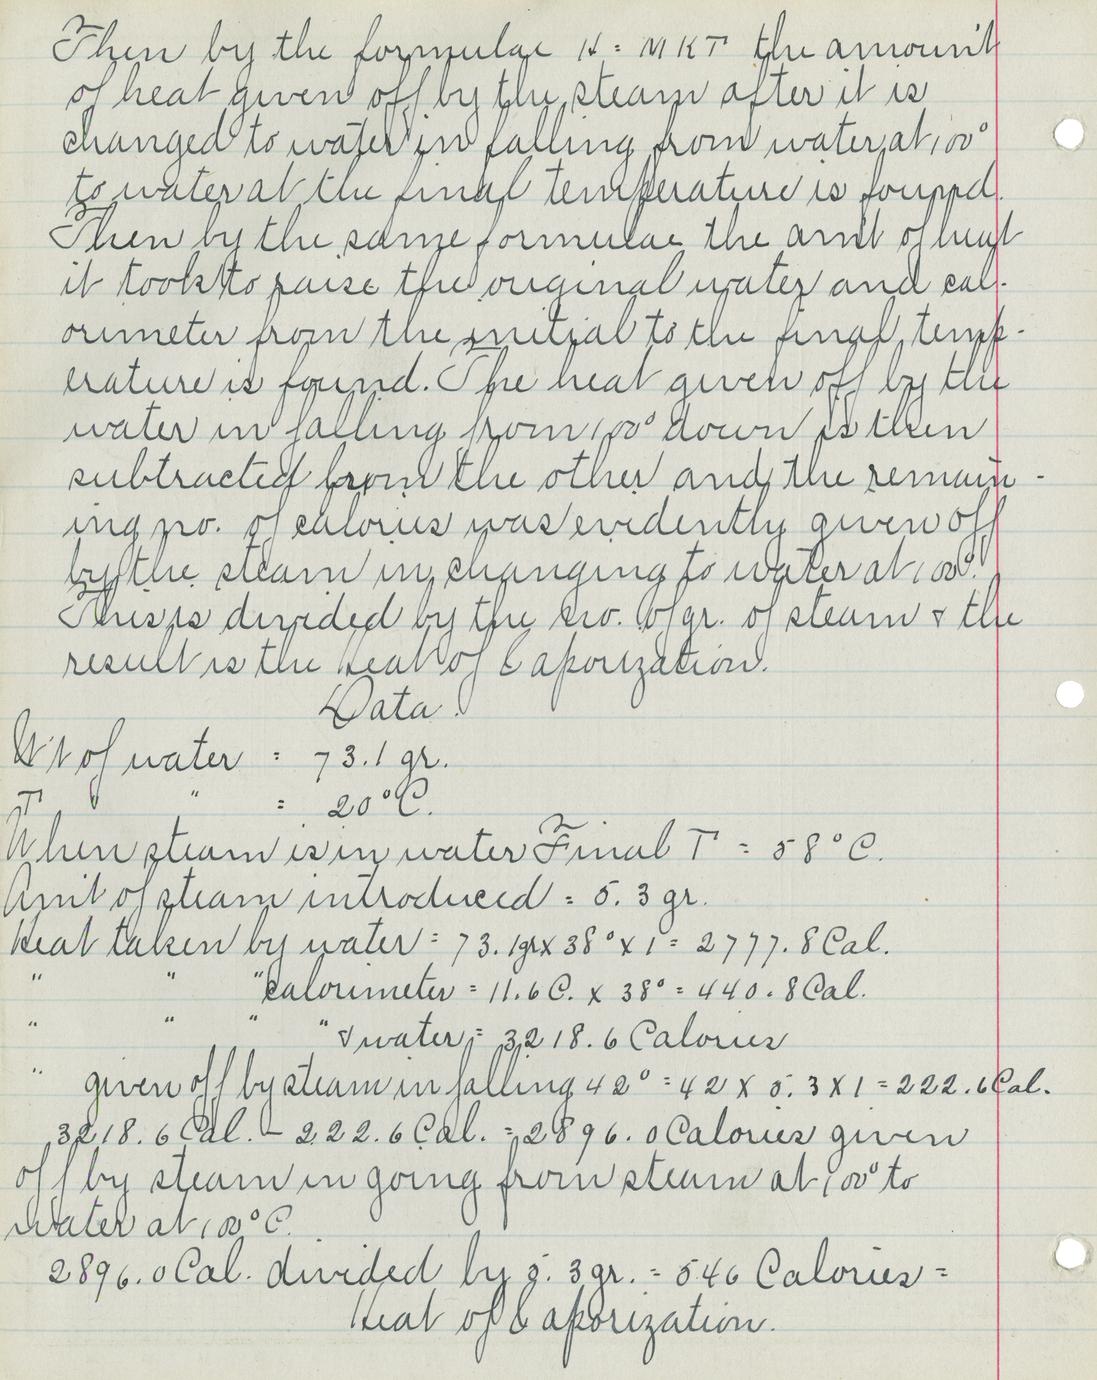 Then by the formulae H = MKT the amount
of heat given off by the steam after it is
changed to water in falling from water at 100°
to water at the final temperature is found.
Then by the same formulae the amt of heat
it took to raise the original water and cal-
orimeter from the initial to the final temp-
erature is found. The heat given off by the
water in falling from 100° down is then
subtracted from the other and the remain-
ing no. of calories was evidently given off
by the steam in changing to water at 100°.
This is divided by the no. of gr. of steam & the
result is the Heat of Vaporization.
Data.
Wt of water = 73.1 gr.
T " = 20°C.
When steam is in water Final T = 58°C.
Amt of steam introduced = 5.3 gr.
Heat taken by water = 73.1gr x 38° x 1 = 2777.8 Cal.
" " " calorimeter = 11.6 C. x 38° = 440.8 Cal.
" " " " & water = 3218.6 Calories
" given off by steam in falling 42° = 42 x 5.3 x 1 = 222.6 Cal.
3218.6 Cal. - 222.6 Cal. = 2896.0 Calories given
off by steam in going from steam at 100° to
water at 100°C.
2896.0 Cal. divided by 5.3 gr. = 546 Calories =
Heat of Vaporization.